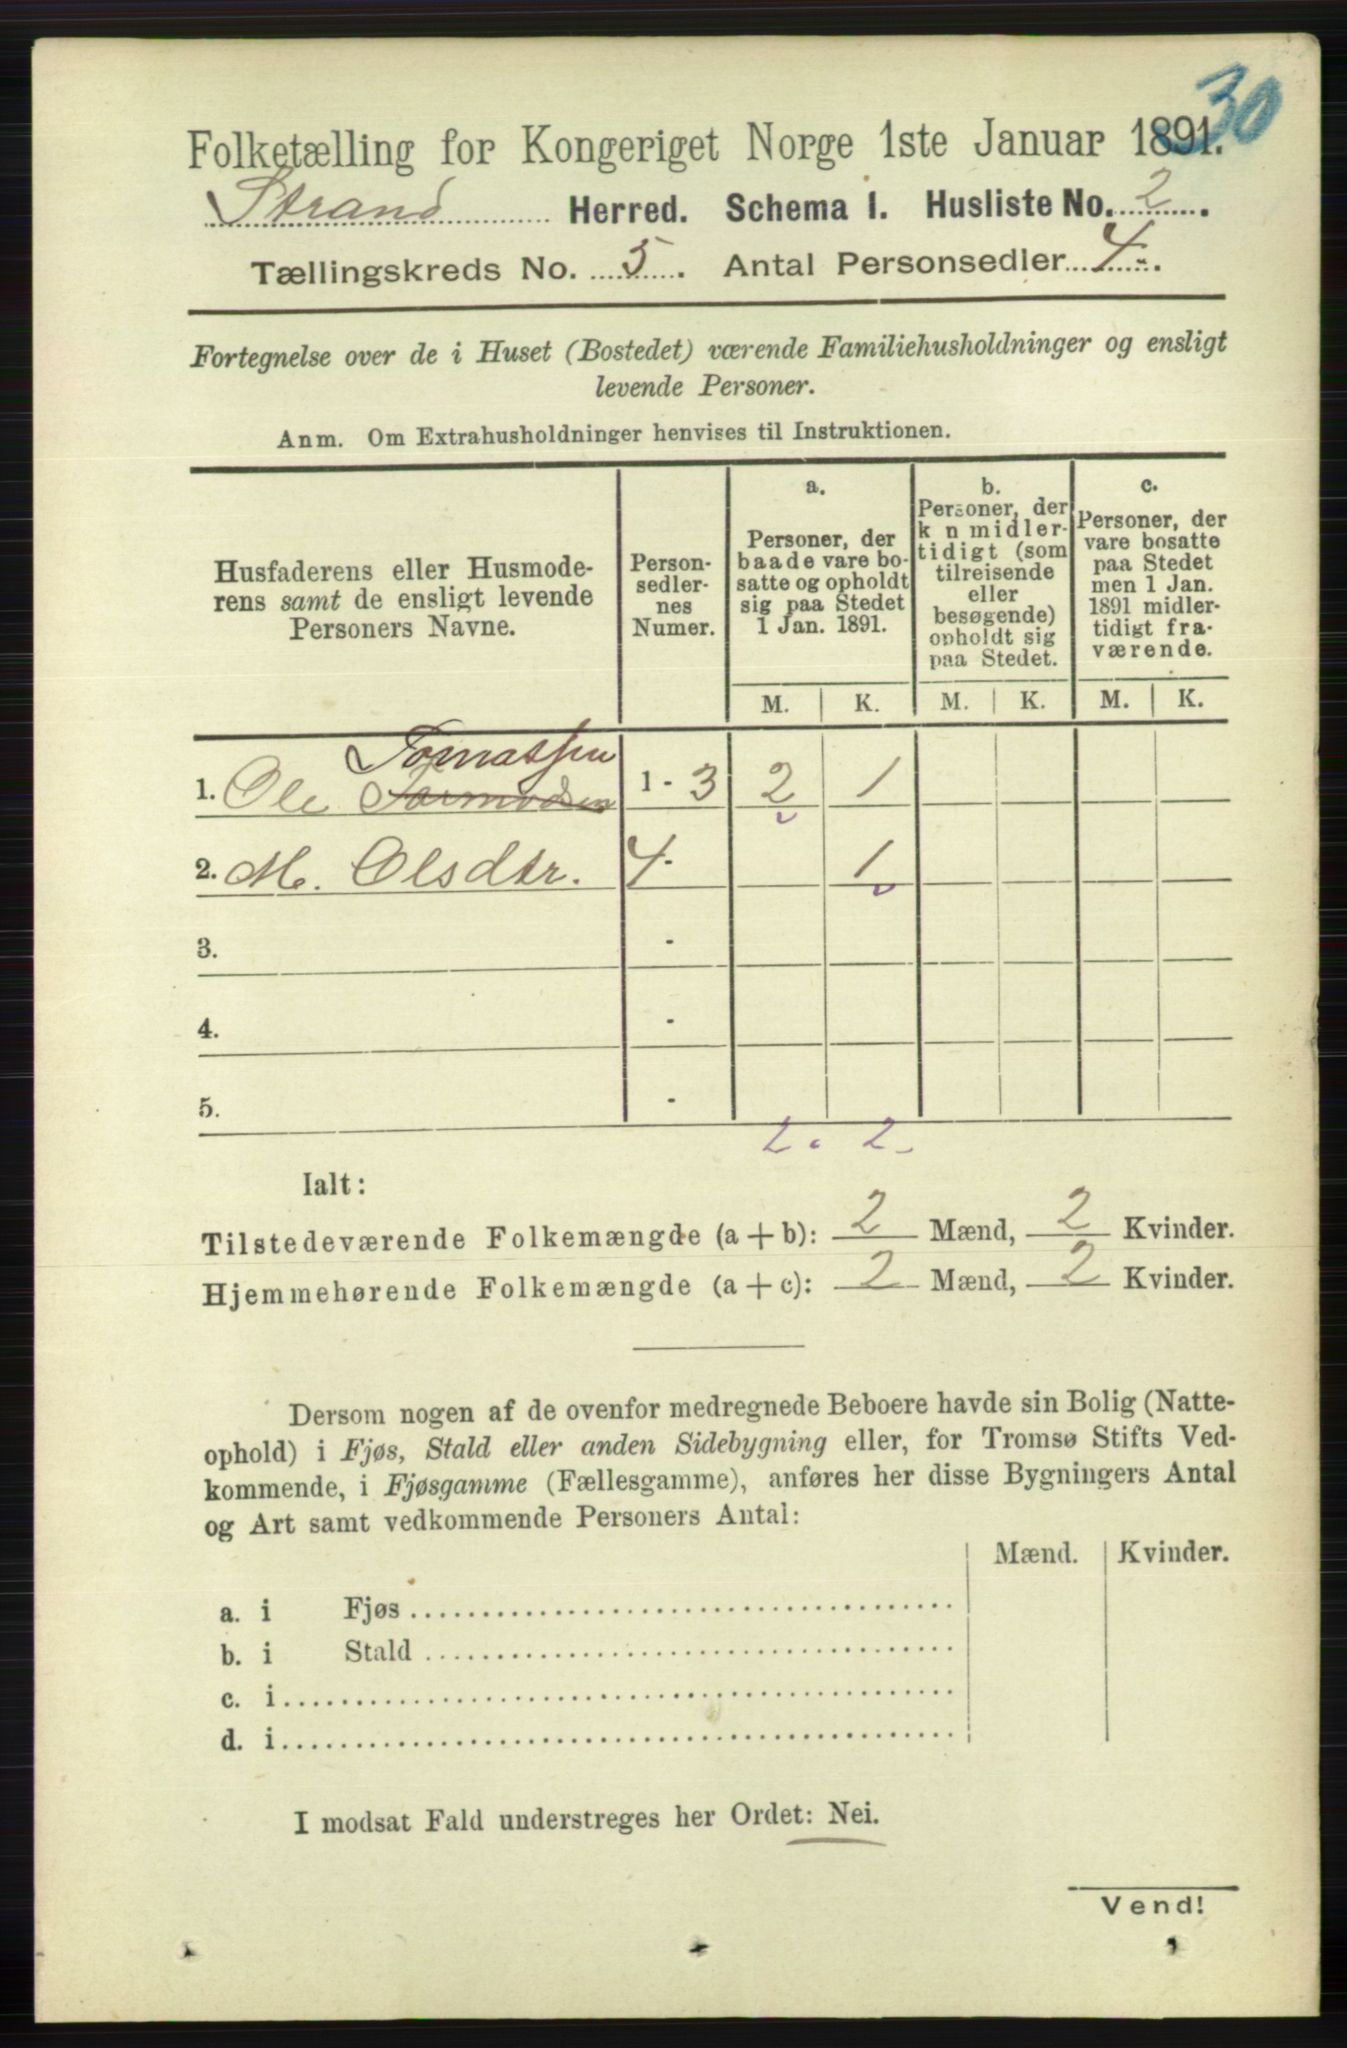 30
Folketælling for Kongeriget Norge 1ste Januar 1891.
Strand Herred. Schema I. Husliste No. 2.
Tællingskreds No. 5. Antal Personsedler 4.
Fortegnelse over de i Huset (Bostedet) værende Familiehusholdninger og ensligt
levende Personer.
Anm. Om Extrahusholdninger henvises til Instruktionen.
Husfaderens eller Husmode-
rens samt de ensligt levende
Personers Navne.
Person-
sedler-
nes
Numer.
a.
Personer, der
baade vare bo-
satte og opholdt
sig paa Stedet
1 Jan. 1891.
b.
Personer, der
k n midler-
tidigt (som
tilreisende
eller
besøgende)
opholdt sig
paa Stedet.
c.
Personer, der
vare bosatte
paa Stedet
men 1 Jan.
1891 midler-
tidigt fra-
værende.
M. K. M. K. M. K.
Tomassen
1. Ole Tormodsen 1 - 3 2 1
2. M. Olsdtr. 4 - 1
3. -
4. -
5. -
2. 2.
Ialt:
Tilstedeværende Folkemængde (a + b): 2 Mænd, 2 Kvinder.
Hjemmehørende Folkemængde (a + c): 2 Mænd, 2 Kvinder.
Dersom nogen af de ovenfor medregnede Beboere havde sin Bolig (Natte-
ophold) i Fjøs, Stald eller anden Sidebygning eller, for Tromsø Stifts Ved-
kommende, i Fjøsgamme (Fællesgamme), anføres her disse Bygningers Antal
og Art samt vedkommende Personers Antal:
Mænd. Kvinder.
a. i Fjøs
b. i Stald
c. i
d. i
I modsat Fald understreges her Ordet: Nei.
Vend!